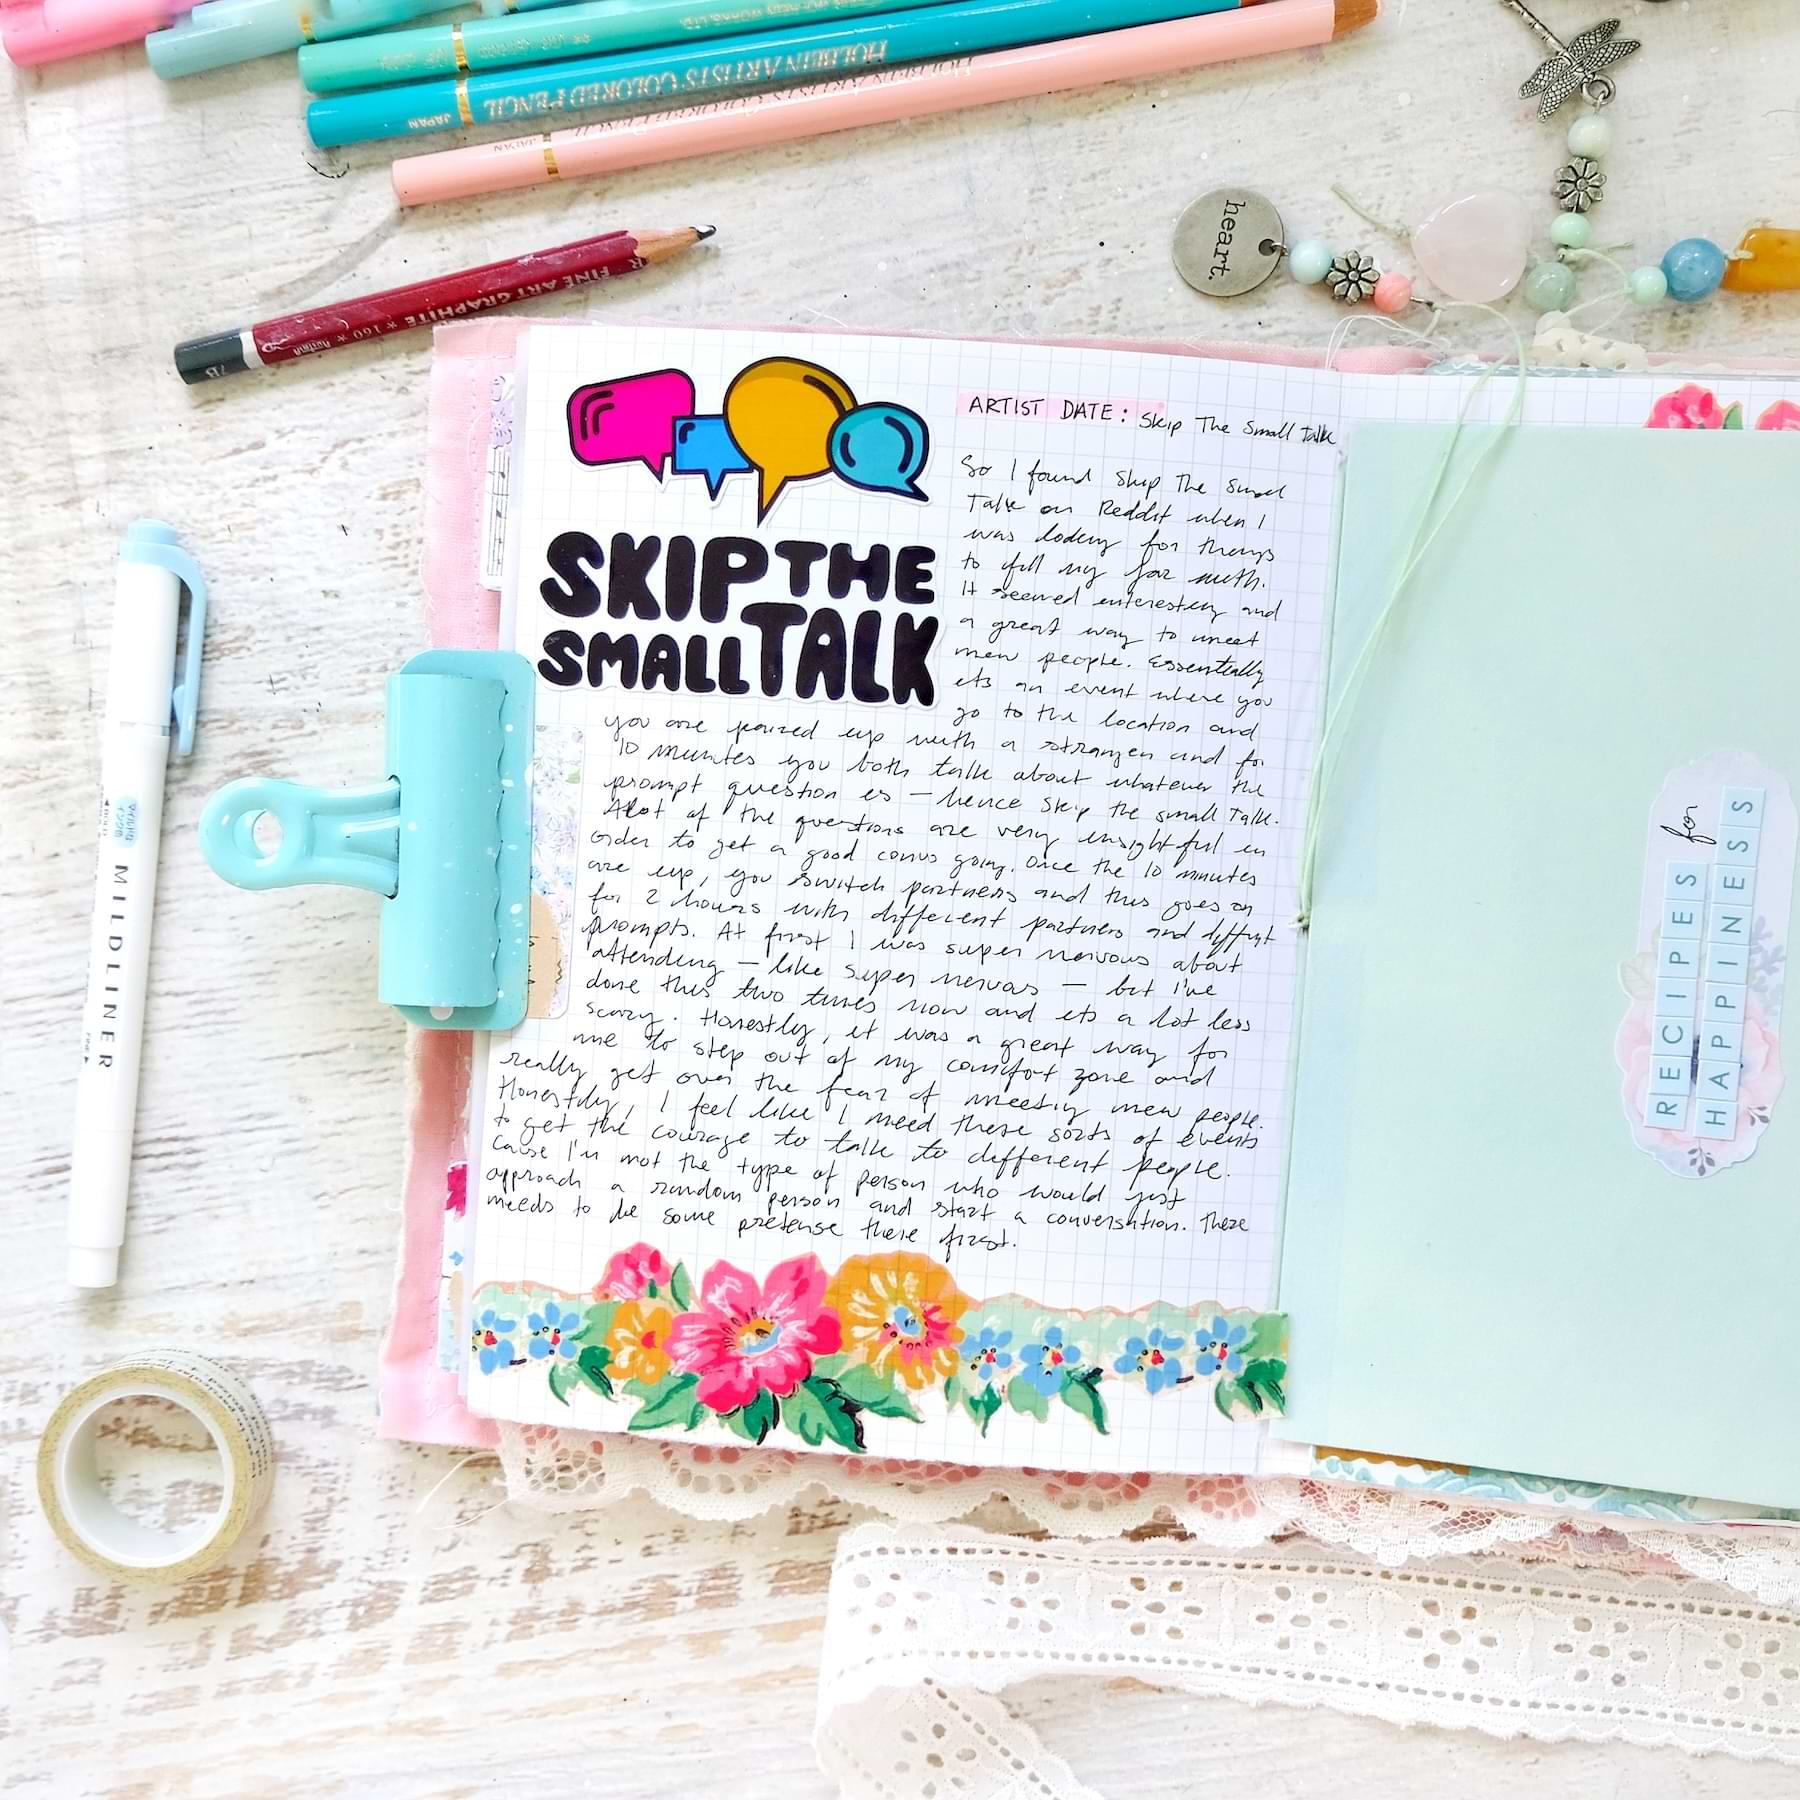 HOLBEIN ARTISTS' COLORED PENCIL
JAPAN
HOLBEIN ARTISTS' COLORED PENCIL
JAPAN
FINE ART GRAPHITE * 160 * Austria
7B
heart.
SKIP THE
SMALL TALK
ARTIST DATE: Skip The Small Talk
So I found Skip The Small
Talk on Reddit when I
was looking for things
to fill my jar with.
It seemed interesting and
a great way to meet
new people. Essentially
its an event where you
go to the location and
you are paired up with a stranger and for
10 minutes you both talk about whatever the
prompt question is — hence Skip the small Talk.
Alot of the questions are very insightful in
order to get a good convo going. Once the 10 minutes
are up, you switch partners and this goes on
for 2 hours with different partners and diffrnt
prompts. At first I was super nervous about
attending — like super nervous — but I've
done this two times now and its a lot less
scary. Honestly, it was a great way for
me to step out of my comfort zone and
really get over the fear of meeting new people.
Honestly, I feel like I need these sorts of events
to get the courage to talk to different people.
Cause I'm not the type of person who would just
approach a random person and start a conversation. There
needs to be some pretense there first.
MILDLINER
RECIPES for
HAPPINESS